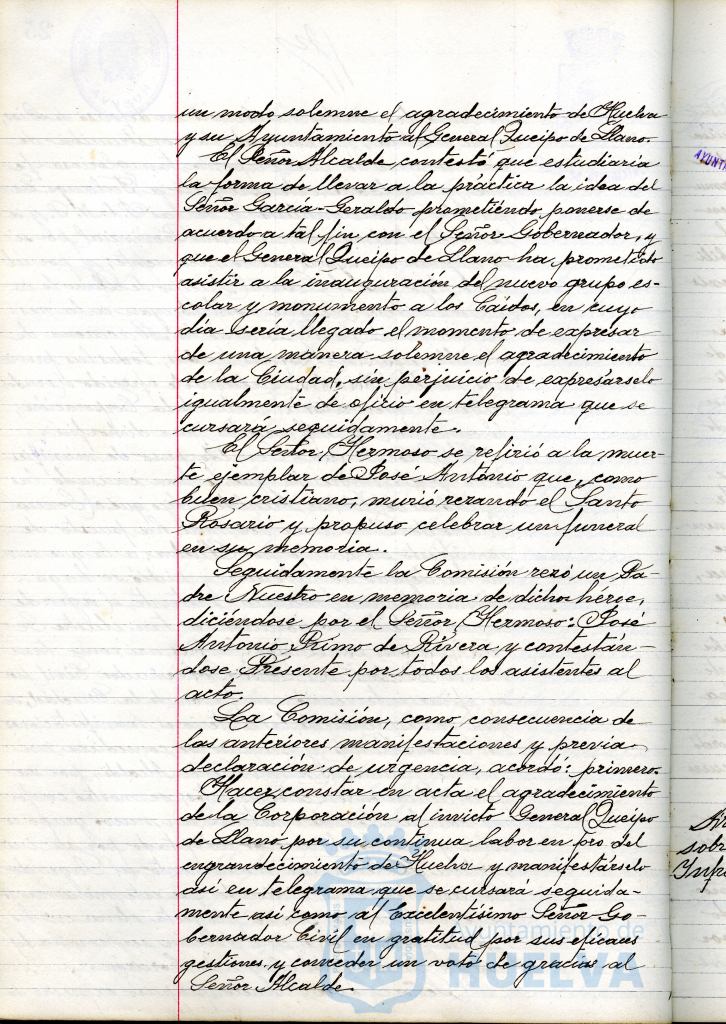 un modo solemne el agradecimiento de Huelva
y su Ayuntamiento al General Queipo de Llano.
El Señor Alcalde contestó que estudiaria
la forma de llevar a la práctica la idea del
Señor García-Geraldo prometiendo ponerse de
acuerdo a tal fin con el Señor Gobernador, y
que el General Queipo de Llano ha prometido
asistir a la inauguración del nuevo grupo es-
colar y monumento a los Caidos, en cuyo
dia seria llegado el momento de expresar
de una manera solemne el agradecimiento
de la Ciudad, sin perjuicio de expresarselo
igualmente de oficio en telegrama que se
cursará seguidamente.
El Señor Hermoso se refirió a la muer-
te ejemplar de José Antonio que, como
buen cristiano, murió rezando el Santo
Rosario y propuso celebrar un funeral
en su memoria.
Seguidamente la Comisión rezó un Pa-
dre Nuestro en memoria de dicho héroe,
diciéndose por el Señor Hermoso: José
Antonio Primo de Rivera y contestán-
dose Presente por todos los asistentes al
acto.
La Comisión, como consecuencia de
las anteriores manifestaciones y previa
declaración de urgencia, acordó: primero.
Hacer constar en acta el agradecimiento
de la Corporación al invicto General Queipo
de Llano por su continua labor en pro del
engrandecimiento de Huelva y manifestárselo
asi en telegrama que se cursará seguida-
mente asi como al Excelentísimo Señor Go-
bernador Civil en gratitud por sus eficaces
gestiones y conceder un voto de gracias al
Señor Alcalde.
Ayuntamiento de
HUELVA
AYUNT
sobr